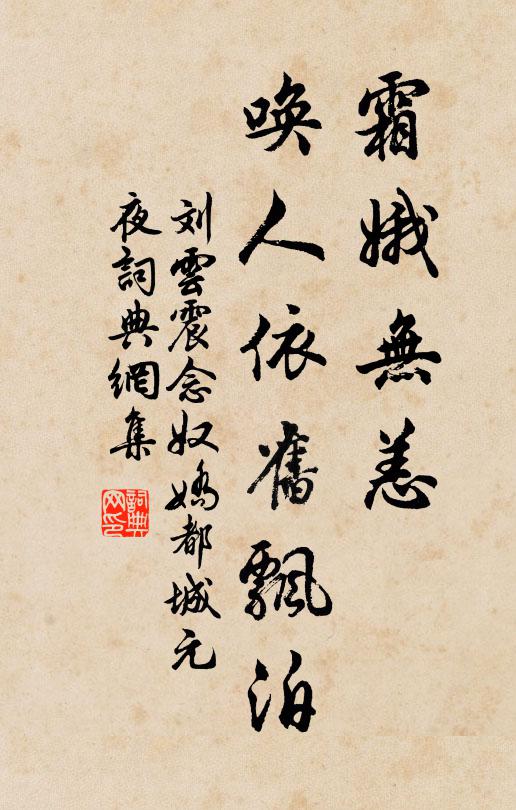 霜娥無恙
唤人依舊飄泊
刘雲震念奴嬌都城元
夜詞典網集
詞典
网印